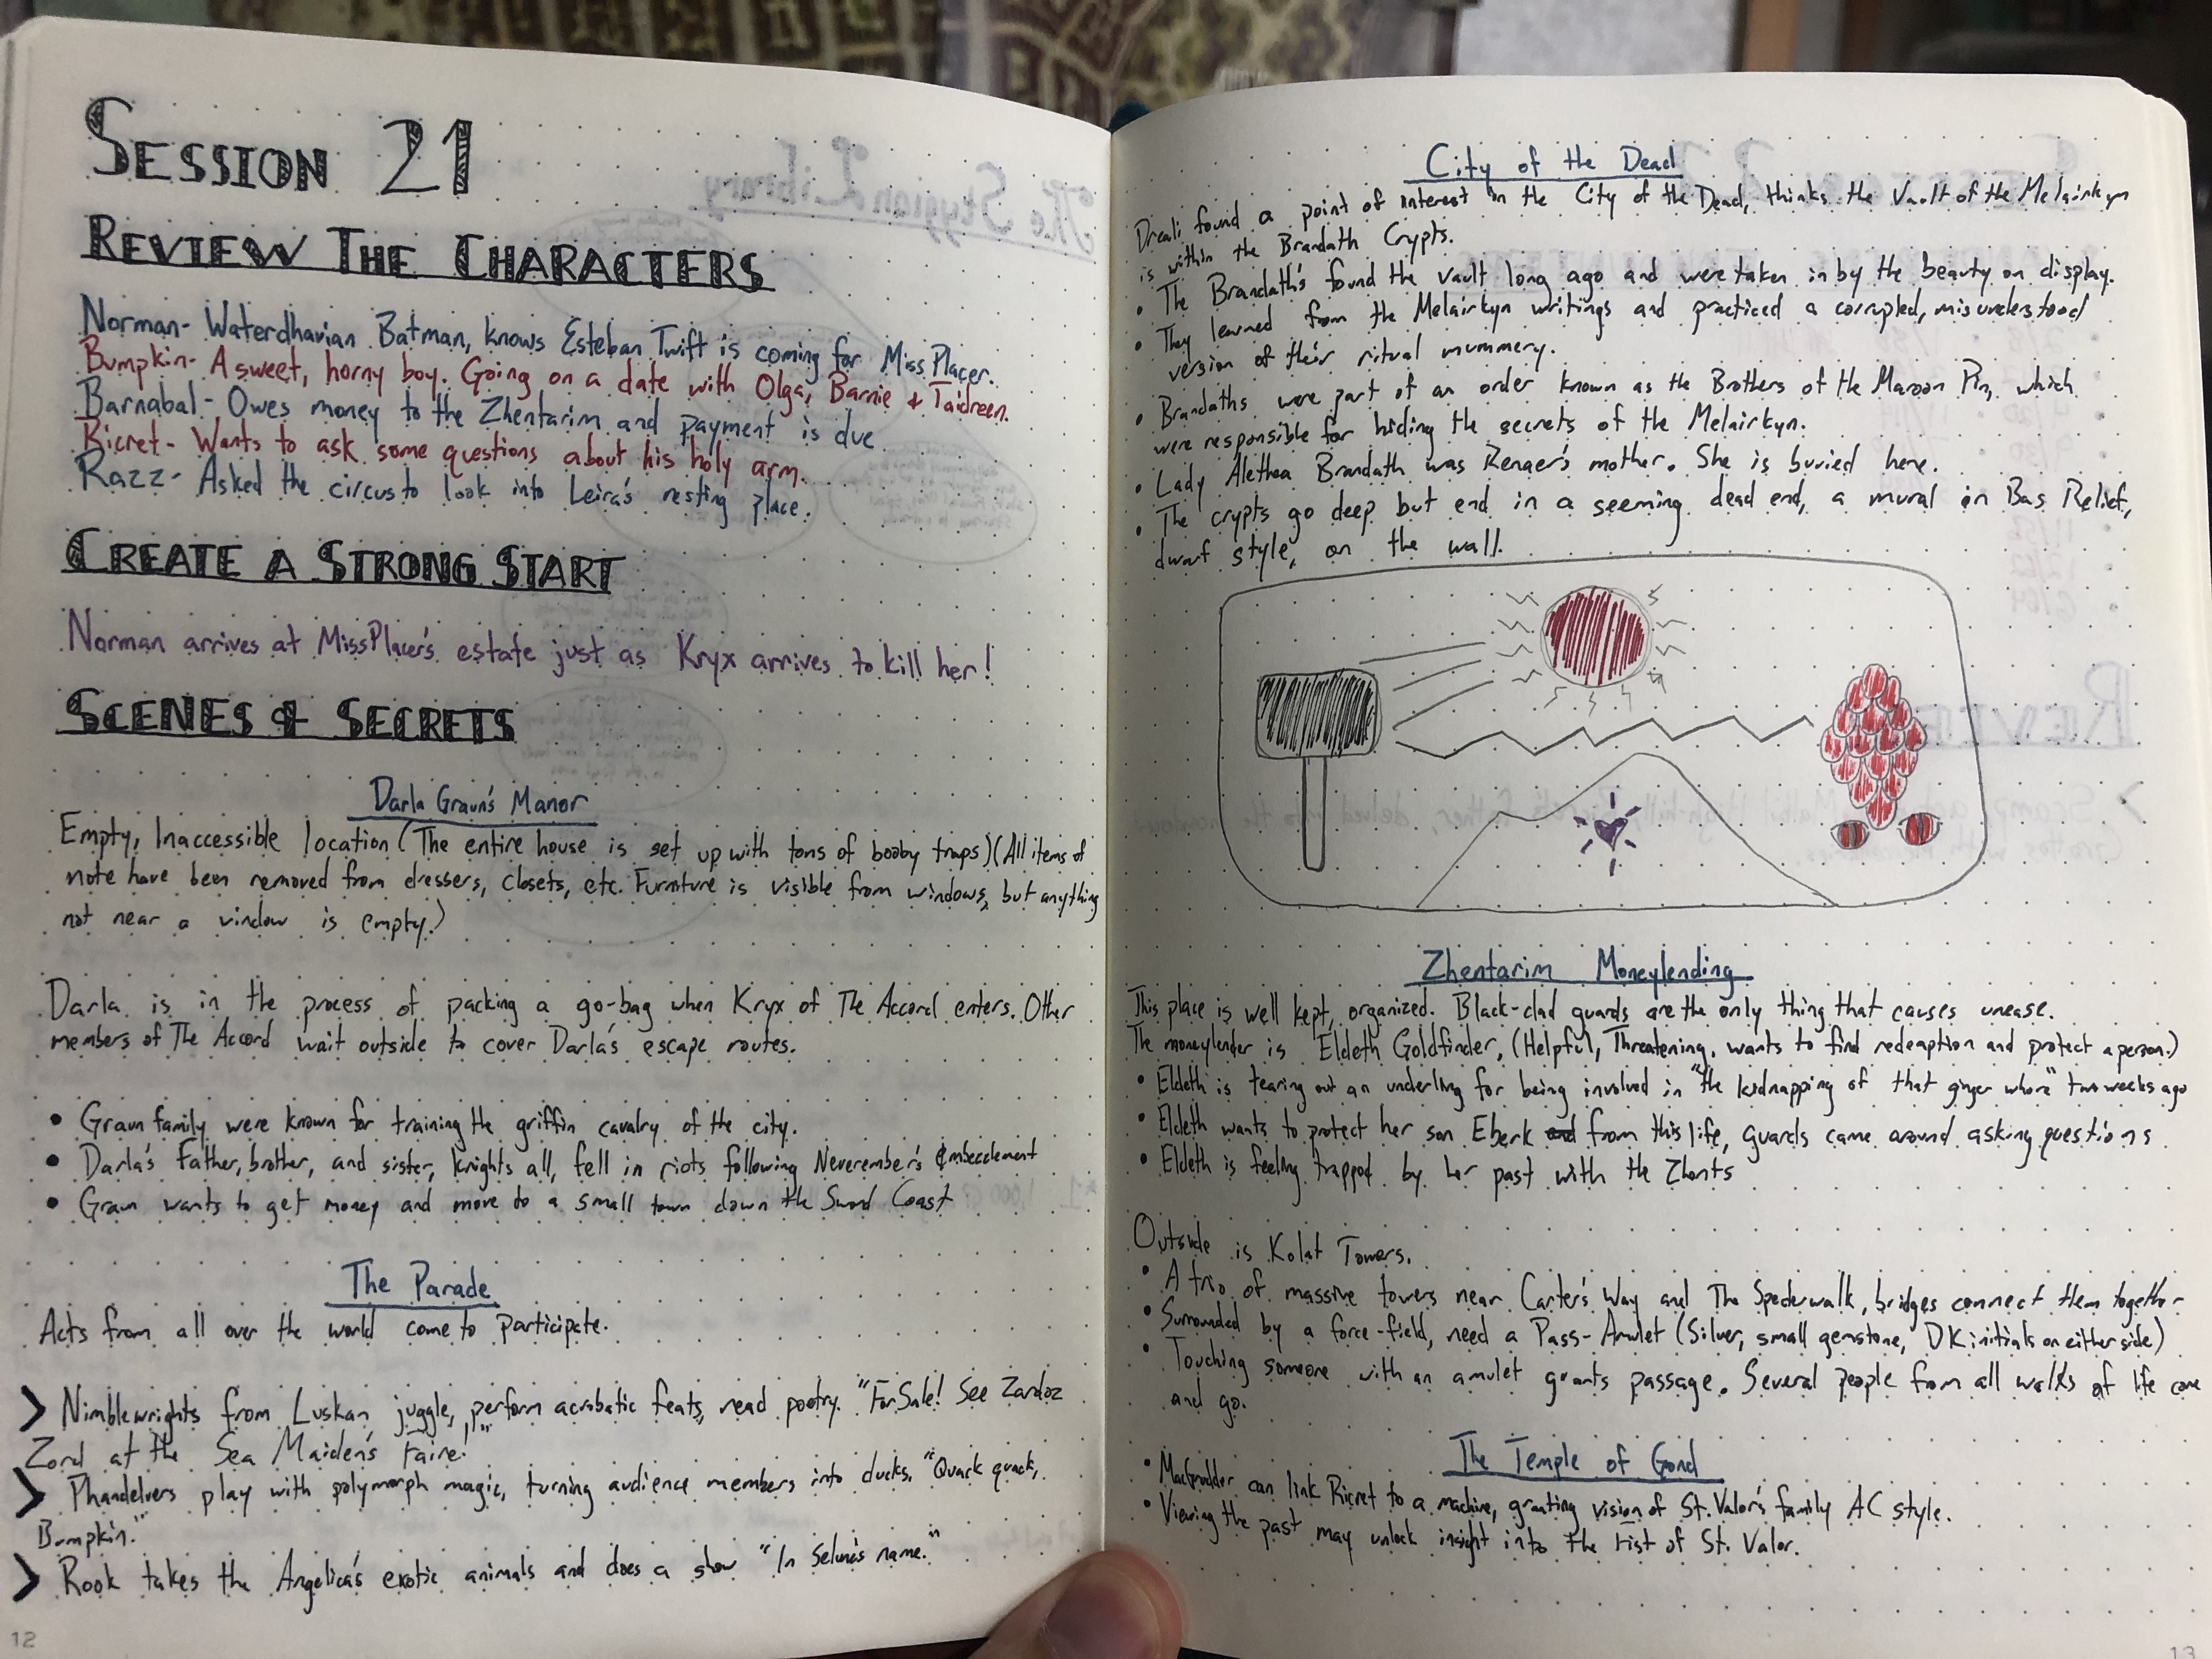 SESSION 21
REVIEW THE CHARACTERS
Norman- Waterdhavian Batman, knows Esteban Twift is coming for Miss Placer.
Bumpkin- A sweet, horny boy. Going on a date with Olga, Barnie & Taidreen.
Barnabal- Owes money to the Zhentarim and payment is due
Ricret- Wants to ask some questions about his holy arm.
Razz- Asked the circus to look into Leira's resting place.
CREATE A STRONG START
Norman arrives at MissPlacer's estate just as Kryx arrives to kill her!
SCENES & SECRETS
Darla Graun's Manor
Empty, Inaccessible location (The entire house is set up with tons of booby traps)(All items of
note have been removed from dressers, closets, etc. Furniture is visible from windows, but anything
not near a window is empty.)
Darla is in the process of packing a go-bag when Kryx of The Accord enters. Other
members of The Accord wait outside to cover Darla's escape routes.
• Graun family were known for training the griffin cavalry of the city.
• Darla's Father, brother, and sister, knights all, fell in riots following Neverember's Embezzlement
• Graun wants to get money and move to a small town down the Sword Coast
The Parade
Acts from all over the world come to participate.
> Nimblewrights from Luskan juggle, perform acrobatic feats, read poetry. "For Sale! See Zardoz
Zord at the Sea Maiden's Faire!"
> Phandelvers play with polymorph magic, turning audience members into ducks. "Quack quack,
Bumpkin."
> Rook takes the Angelica's exotic animals and does a show "In Selune's name."
12
City of the Dead
Dreali found a point of interest in the City of the Dead, thinks the Vault of the Melairkyn
is within the Brandath Crypts.
• The Brandath's found the vault long ago and were taken in by the beauty on display.
• They learned from the Melairkyn writings and practiced a corrupted, misunderstood
version of their ritual mummery.
• Brandaths were part of an order known as the Brothers of the Maroon Pin, which
were responsible for hiding the secrets of the Melairkyn.
• Lady Alethea Brandath was Renaer's mother. She is buried here.
• The crypts go deep but end in a seeming dead end, a mural in Bas Relief,
dwarf style, on the wall.
Zhentarim Moneylending
This place is well kept, organized. Black-clad guards are the only thing that causes unease.
The moneylender is Eldeth Goldfinder, (Helpful, Threatening, wants to find redeaption and protect a person.)
• Eldeth is tearing out an underling for being involved in "the kidnapping of that ginger whore" two weeks ago
• Eldeth wants to protect her son Eberk and from this life, guards came around asking questions
• Eldeth is feeling trapped by her past with the Zhents
Outside is Kolat Towers.
• A trio of massive towers near Carter's Way and The Spederwalk, bridges connect them together
• Surrounded by a force-field, need a Pass-Amulet (Silver, small gemstone, DK initials on either side)
• Touching someone with an amulet grants passage. Several people from all walks of life come
and go.
The Temple of Gond
• MacGrudder can link Ricret to a machine, granting vision of St. Valor's family AC style.
• Viewing the past may unlock insight into the Fist of St. Valor.
13